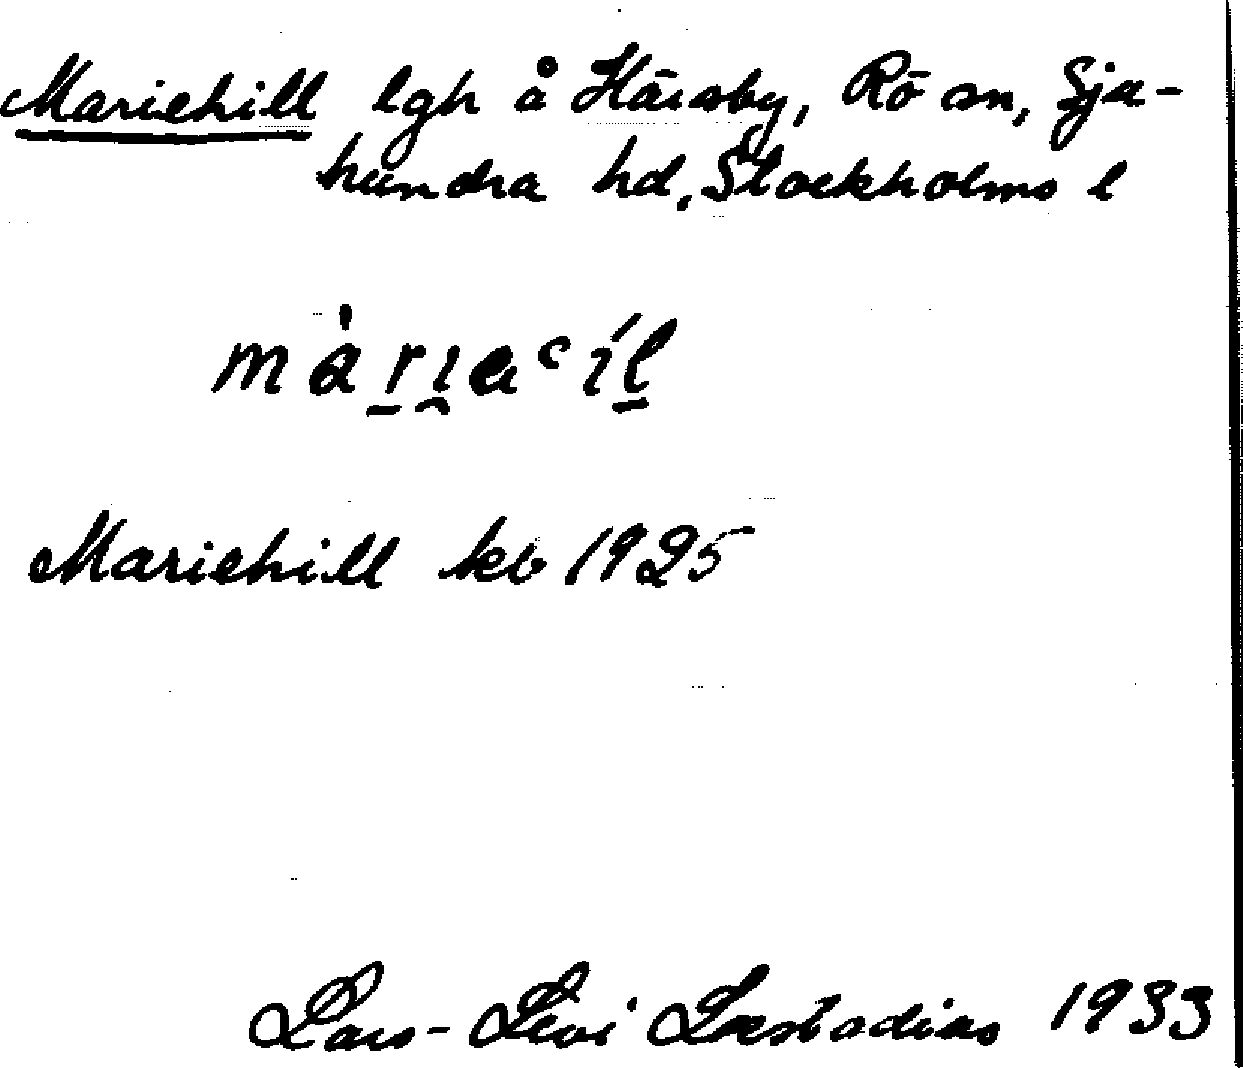 Mariehill lgh å Härsby, Rö sn, Sju-
hundra hd, Stockholms l
Mariehill kb 1925
Lars-Levi Læstadius 1933